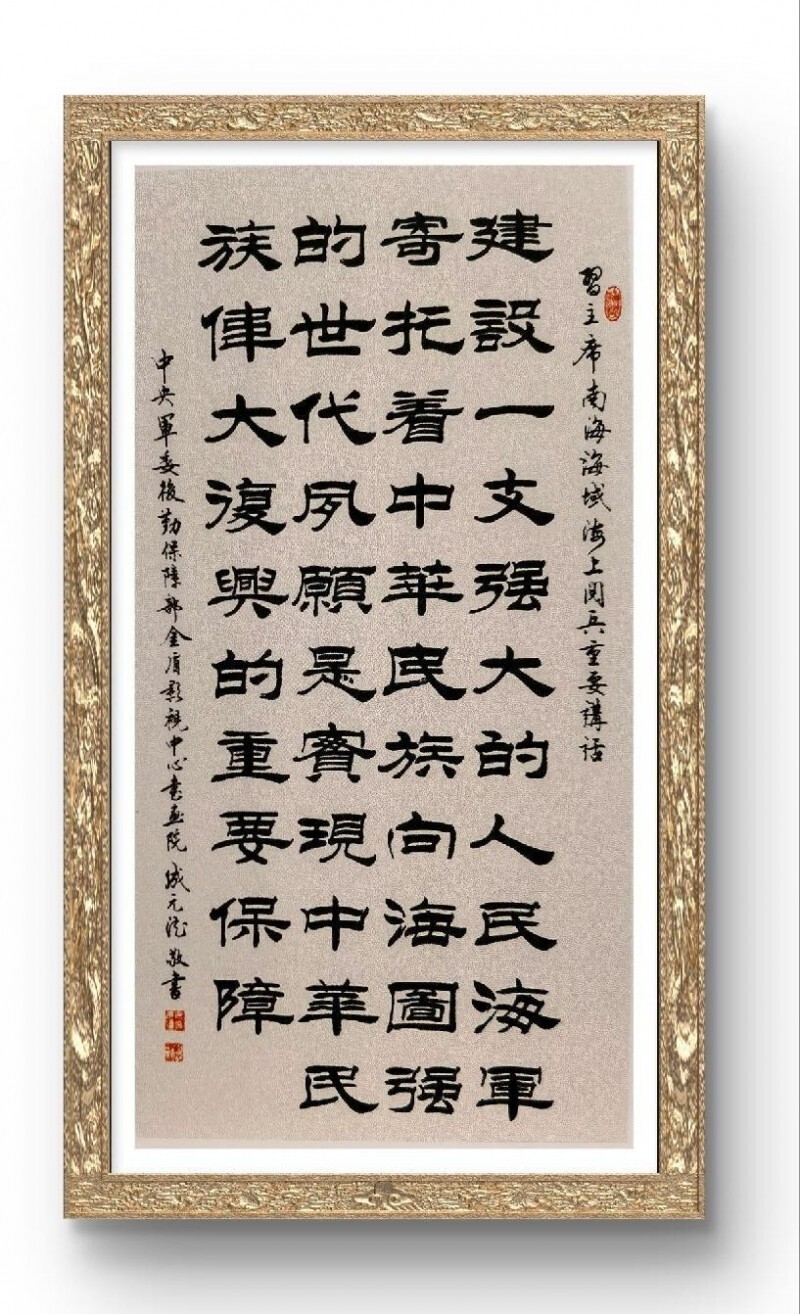 習主席南海海域海上閱兵重要講話
建設一支强大的人民海軍
寄托着中華民族向海圖强
的世代夙願是實現中華民
族偉大復興的重要保障
中央軍委後勤保障部金盾影視中心書畫院 成元浩敬書